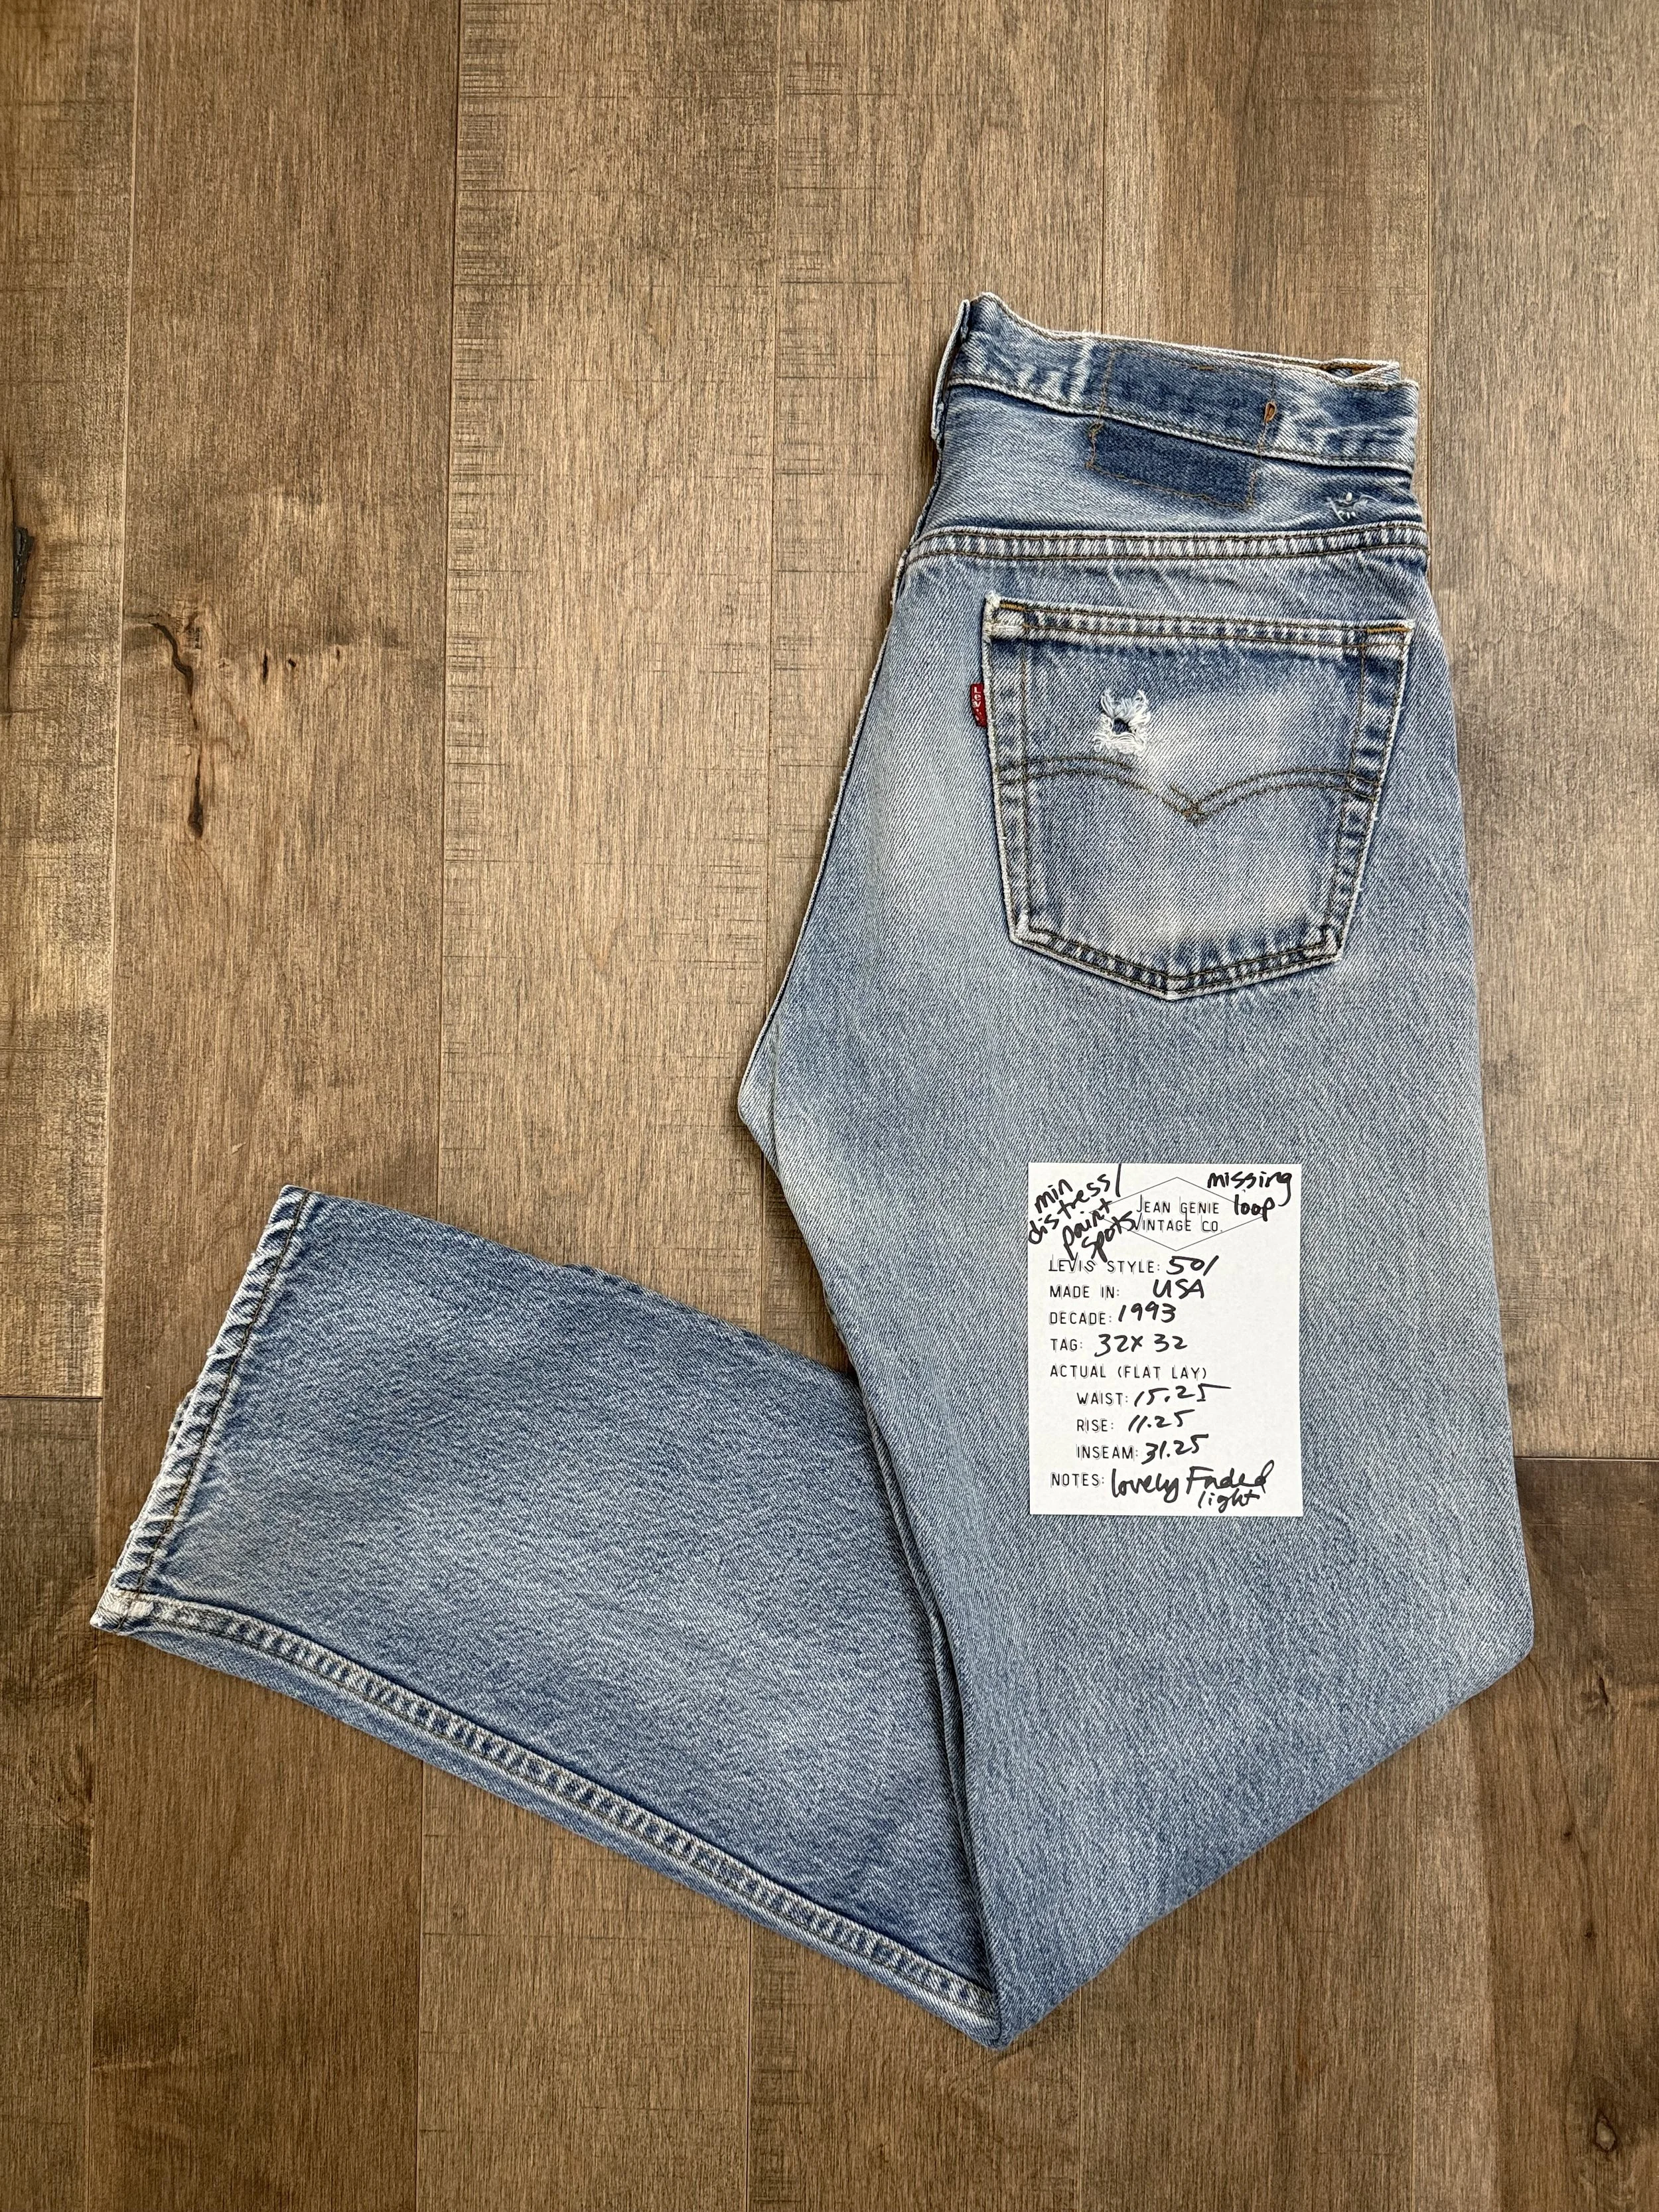 LEVI'S
min
distress/
paint
spots
missing
loop
JEAN GENIE
VINTAGE CO.
LEVIS STYLE: 501
MADE IN: USA
DECADE: 1993
TAG: 32x32
ACTUAL (FLAT LAY)
WAIST: 15.25
RISE: 11.25
INSEAM: 31.25
NOTES: lovely Faded
light